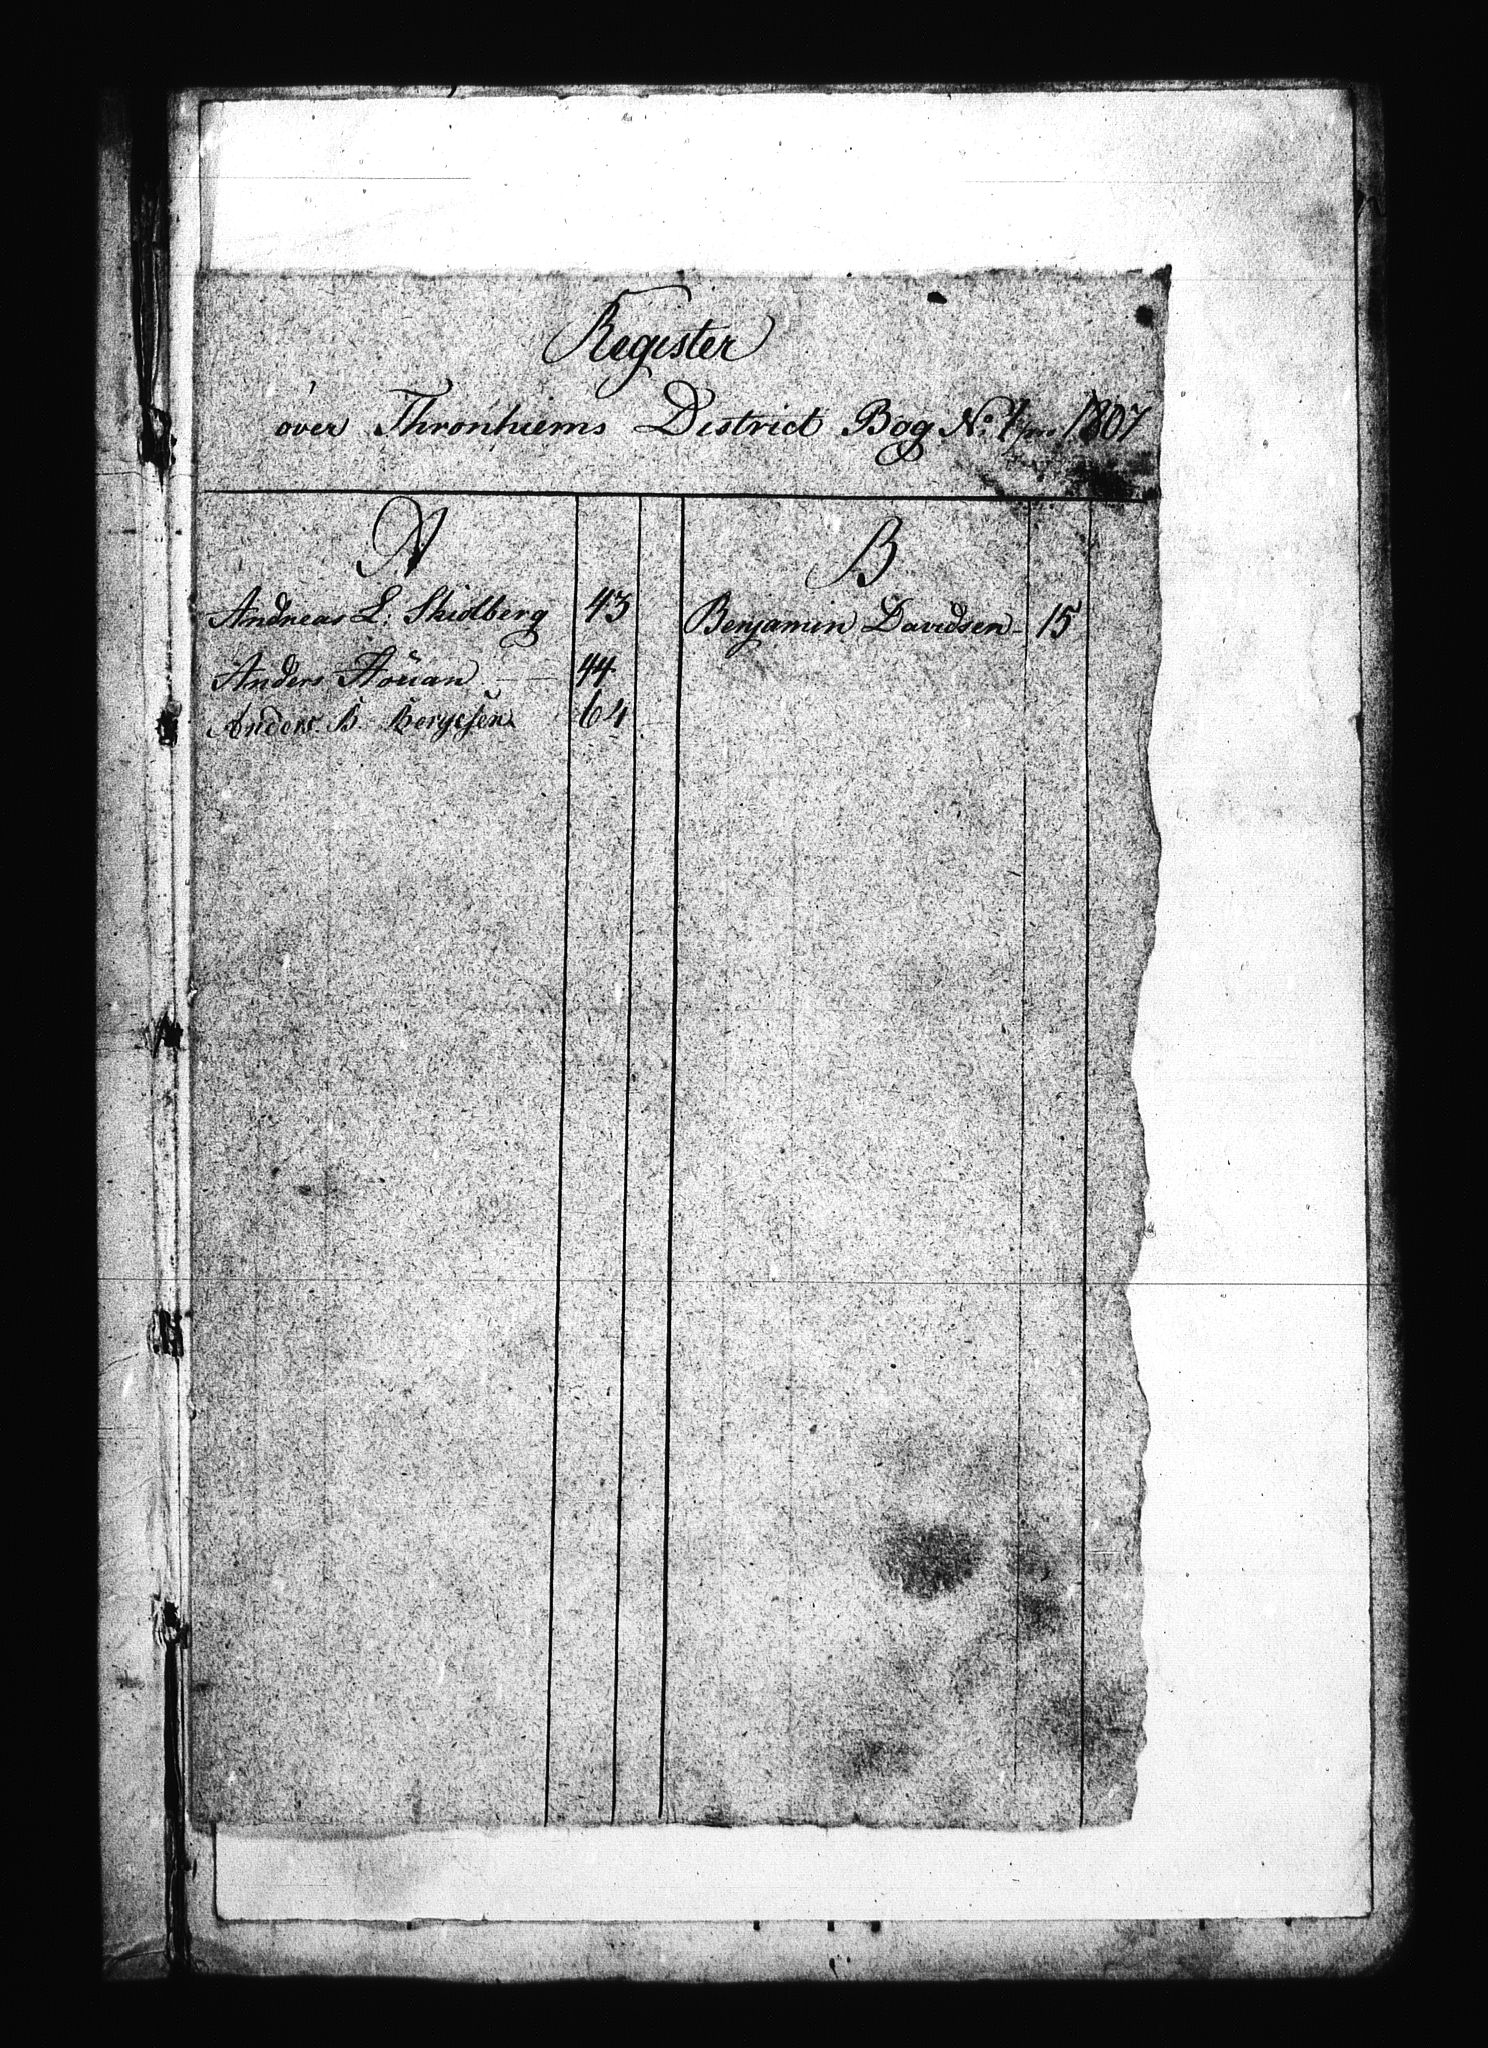 Register
over Thronhiems District Bog No. 1 pro 1807
A
Andreas L. Skidlberg 43
Anders Höuan 44
Anders B. Bergesen 64
B
Benjamin Davidsen 15